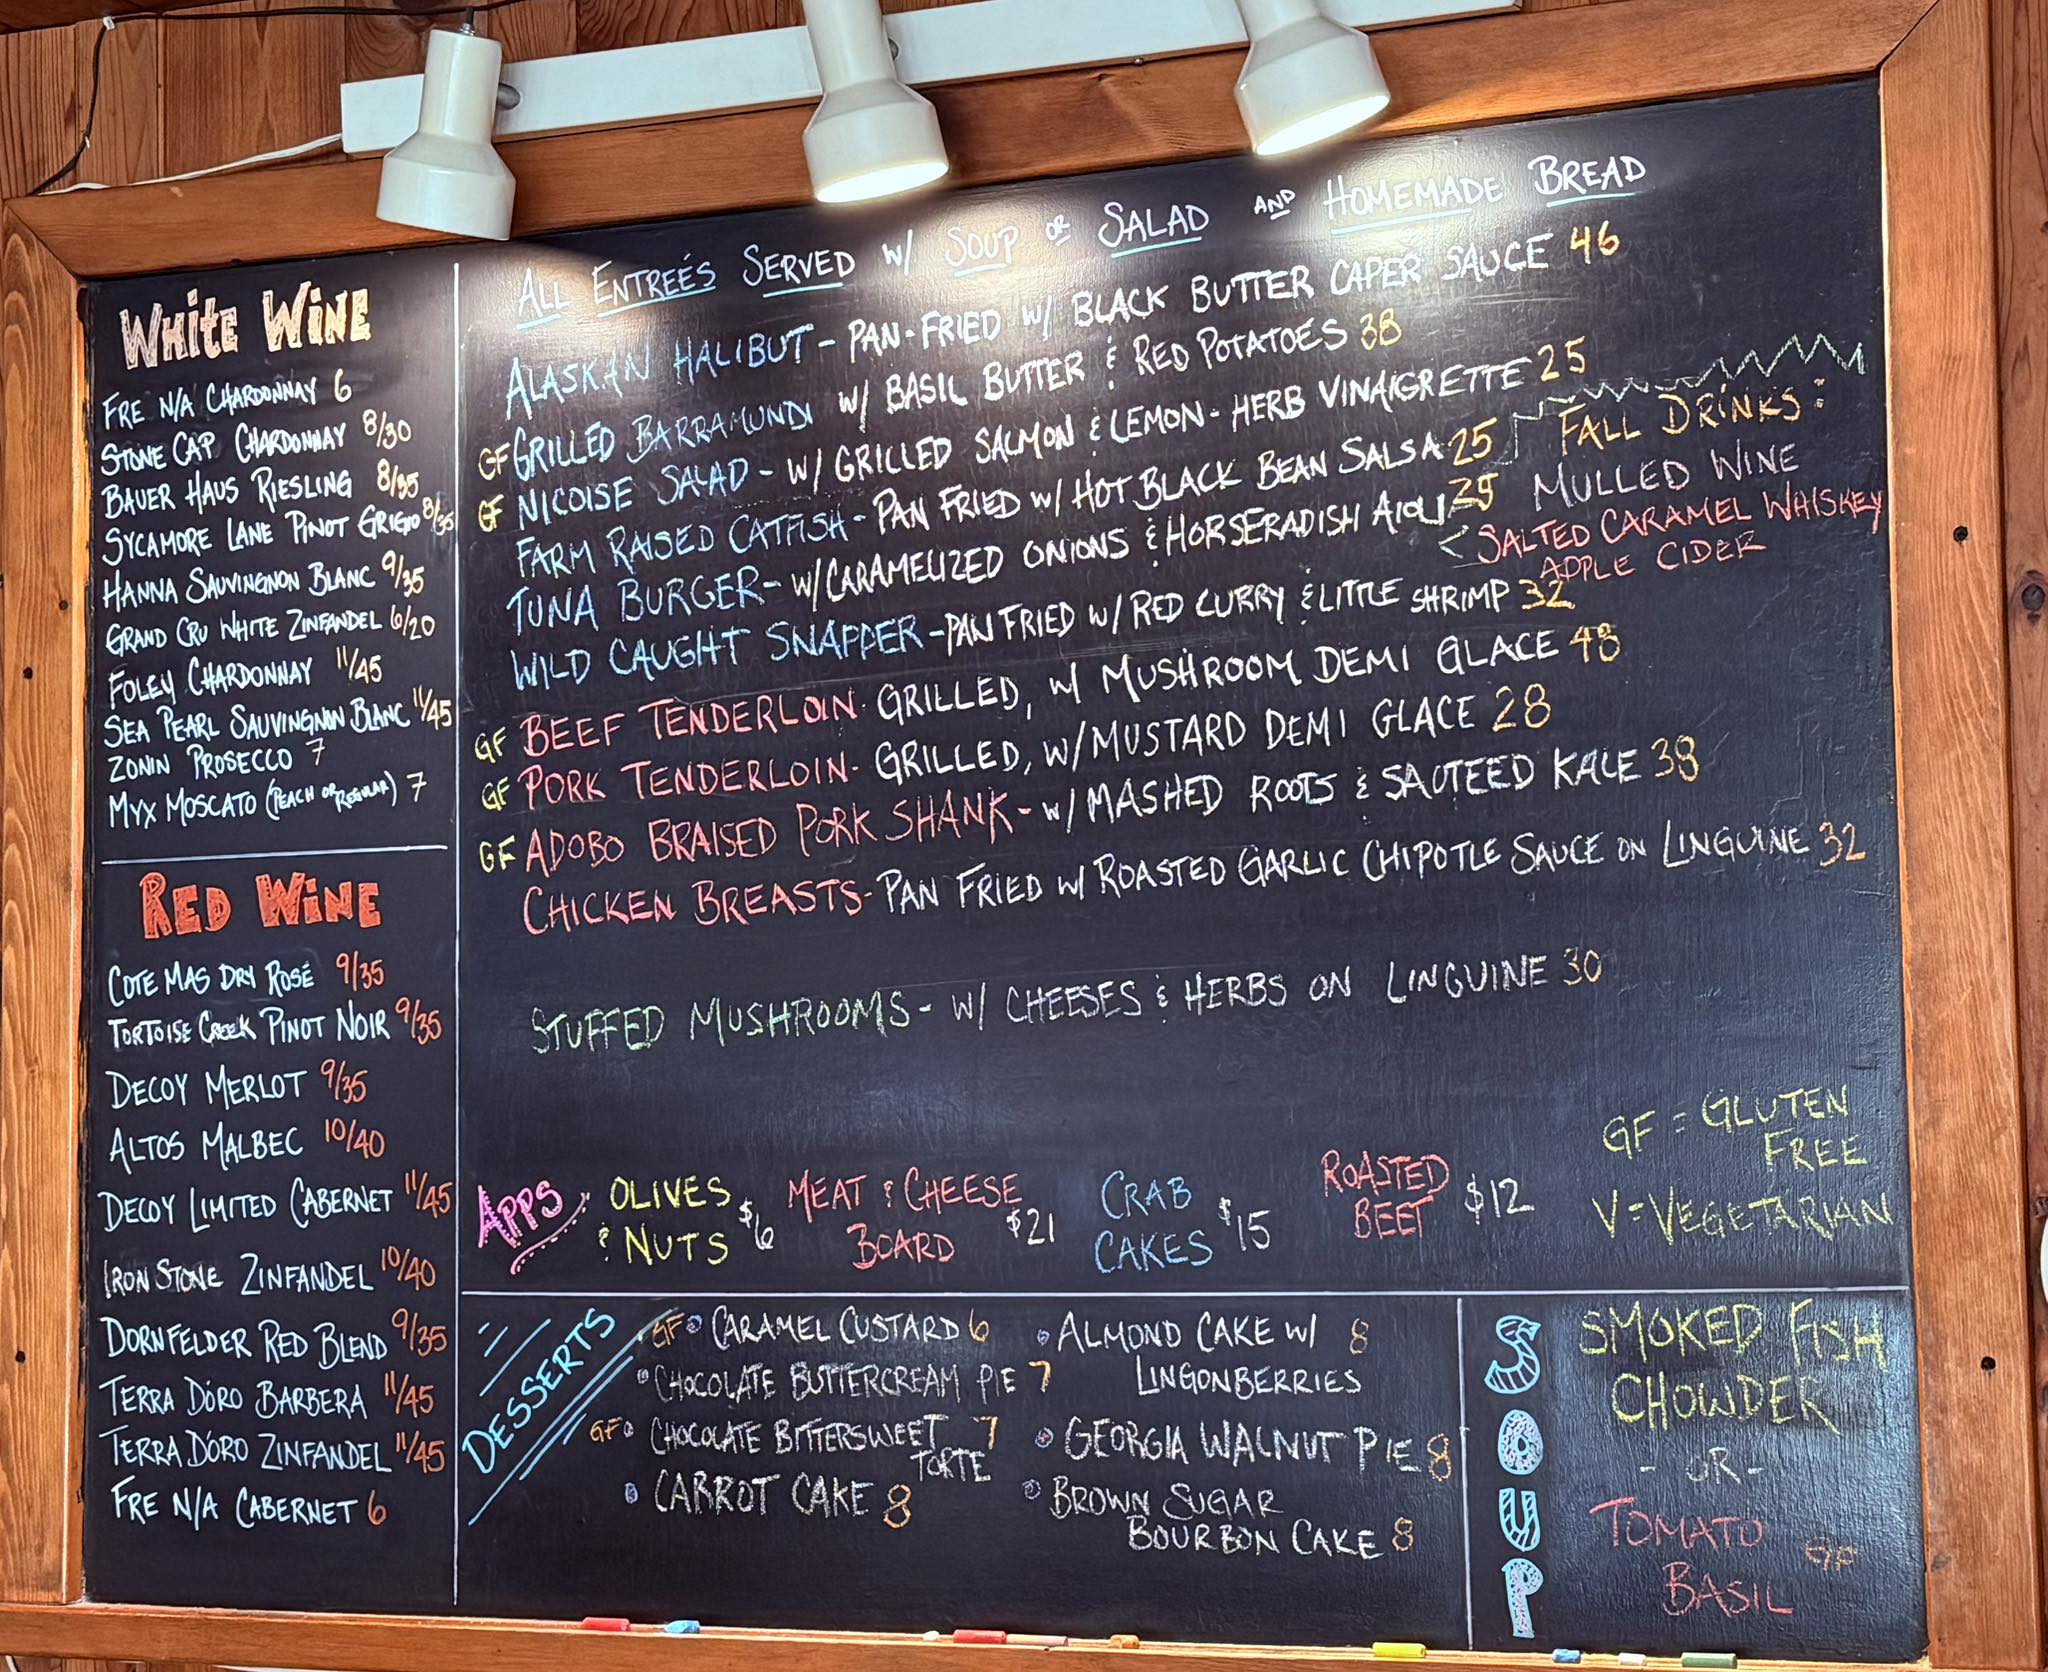 WHITE WINE
FRE N/A CHARDONNAY 6
STONE CAP CHARDONNAY 8/30
BAUER HAUS RIESLING 8/35
SYCAMORE LANE PINOT GRIGIO 8/35
HANNA SAUVINGNON BLANC 9/35
GRAND CRU WHITE ZINFANDEL 6/20
FOLEY CHARDONNAY 11/45
SEA PEARL SAUVINGNON BLANC 11/45
ZONIN PROSECCO 7
MYX MOSCATO (PEACH OR REGULAR) 7
RED WINE
COTE MAS DRY ROSÉ 9/35
TORTOISE CREEK PINOT NOIR 9/35
DECOY MERLOT 9/35
ALTOS MALBEC 10/40
DECOY LIMITED CABERNET 11/45
IRON STONE ZINFANDEL 10/40
DORNFELDER RED BLEND 9/35
TERRA D'ORO BARBERA 11/45
TERRA D'ORO ZINFANDEL 11/45
FRE N/A CABERNET 6
ALL ENTREÉS SERVED W/ SOUP OR SALAD AND HOMEMADE BREAD
ALASKAN HALIBUT - PAN-FRIED W/ BLACK BUTTER CAPER SAUCE 46
GF GRILLED BARRAMUNDI W/ BASIL BUTTER & RED POTATOES 38
GF NICOISE SALAD - W/ GRILLED SALMON & LEMON-HERB VINAIGRETTE 25
FARM RAISED CATFISH - PAN FRIED W/ HOT BLACK BEAN SALSA 25
TUNA BURGER - W/ CARAMELIZED ONIONS & HORSERADISH AIOLI 25
WILD CAUGHT SNAPPER - PAN FRIED W/ RED CURRY & LITTLE SHRIMP 32
GF BEEF TENDERLOIN - GRILLED, W/ MUSHROOM DEMI GLACE 48
GF PORK TENDERLOIN - GRILLED, W/ MUSTARD DEMI GLACE 28
GF ADOBO BRAISED PORK SHANK - W/ MASHED ROOTS & SAUTEED KALE 38
CHICKEN BREASTS - PAN FRIED W/ ROASTED GARLIC CHIPOTLE SAUCE ON LINGUINE 32
STUFFED MUSHROOMS - W/ CHEESES & HERBS ON LINGUINE 30
FALL DRINKS:
MULLED WINE
< SALTED CARAMEL WHISKEY
APPLE CIDER
APPS
OLIVES
& NUTS $6
MEAT & CHEESE
BOARD $21
CRAB
CAKES $15
ROASTED
BEET $12
GF = GLUTEN
FREE
V = VEGETARIAN
DESSERTS
GF CARAMEL CUSTARD 6
CHOCOLATE BUTTERCREAM PIE 7
GF CHOCOLATE BITTERSWEET 7
TORTE
CARROT CAKE 8
ALMOND CAKE W/ 8
LINGONBERRIES
GEORGIA WALNUT PIE 8
BROWN SUGAR
BOURBON CAKE 8
SOUP
SMOKED FISH
CHOWDER
- OR -
TOMATO
BASIL GF